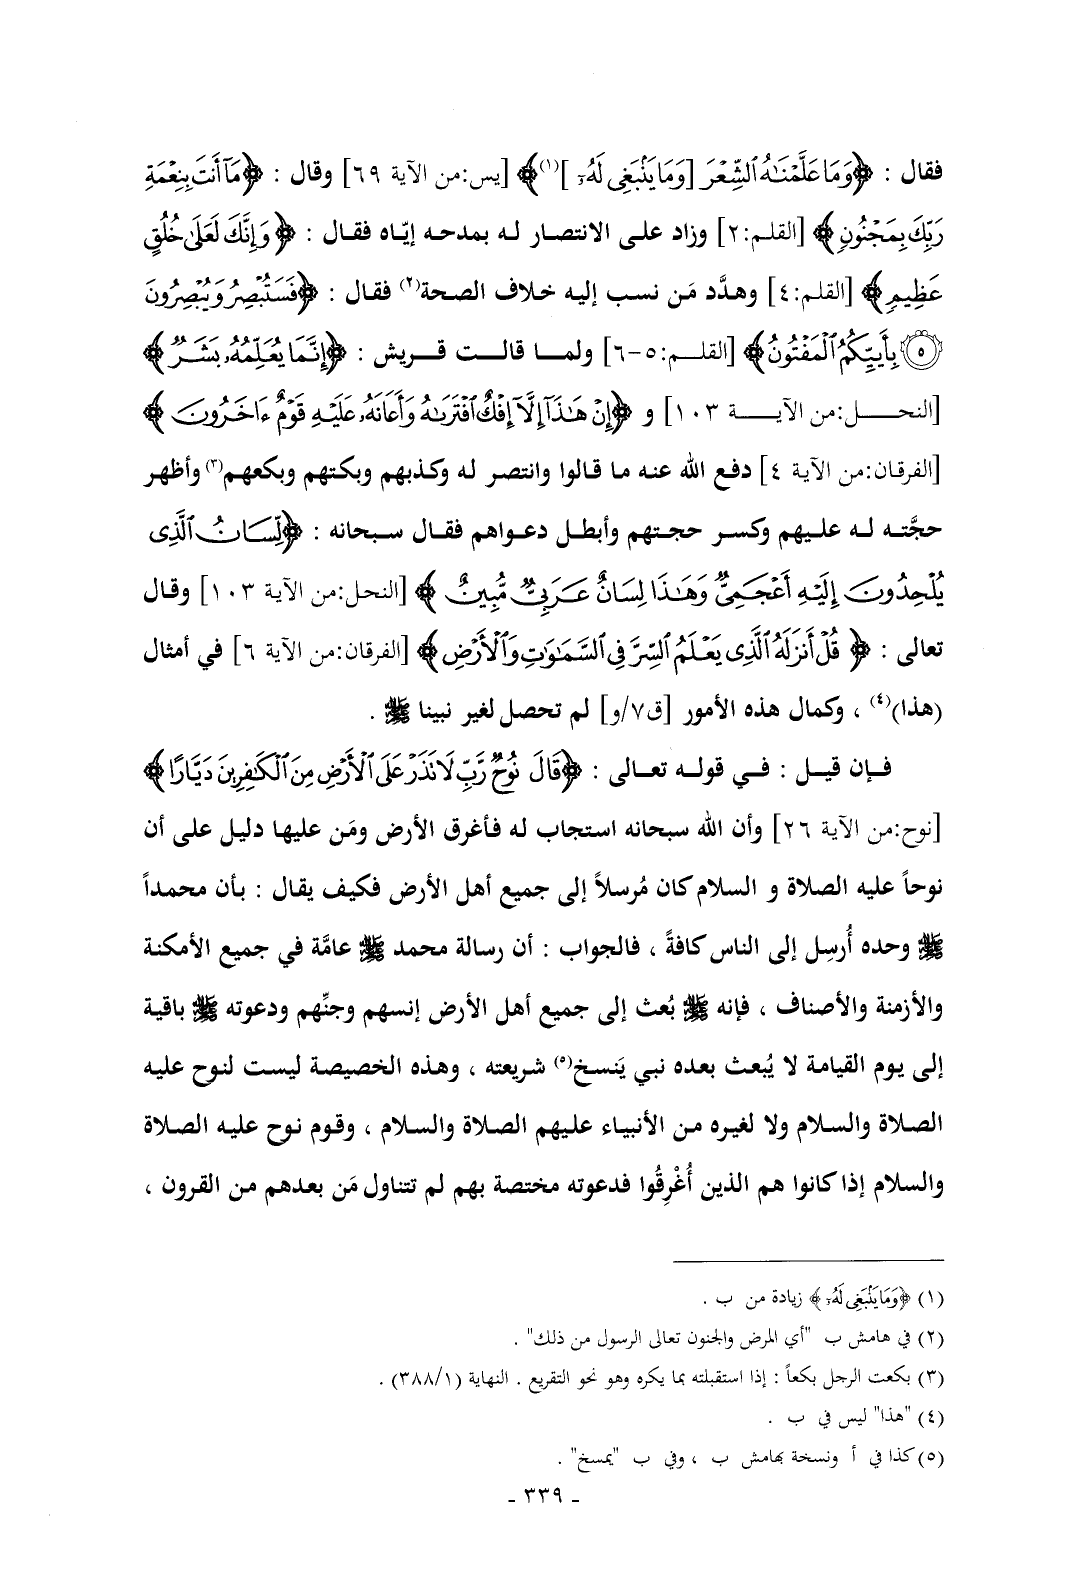 فقال : ﴿وَمَا عَلَّمْنَٰهُ ٱلشِّعْرَ [وَمَا يَنۢبَغِى لَهُۥٓ ]﴾(١) [يس:من الآية ٦٩] وقال : ﴿مَآ أَنتَ بِنِعْمَةِ
رَبِّكَ بِمَجْنُونٍ﴾ [القلم:٢] وزاد على الانتصار له بمدحه إيّاه فقال : ﴿وَإِنَّكَ لَعَلَىٰ خُلُقٍ
عَظِيمٍ﴾ [القلم:٤] وهدَّد مَن نسب إليه خلاف الصحة(٢) فقال : ﴿فَسَتُبْصِرُ وَيُبْصِرُونَ
٥ بِأَييِّكُمُ ٱلْمَفْتُونُ﴾ [القلم:٥-٦] ولما قالت قريش : ﴿إِنَّمَا يُعَلِّمُهُۥ بَشَرٌ﴾
[النحل:من الآية ١٠٣] و ﴿إِنْ هَٰذَآ إِلَّآ إِفْكٌ ٱفْتَرَىٰهُ وَأَعَانَهُۥ عَلَيْهِ قَوْمٌ ءَاخَرُونَ﴾
[الفرقان:من الآية ٤] دفع الله عنه ما قالوا وانتصر له وكذبهم وبكتهم وبكعهم(٣) وأظهر
حجَّته له عليهم وكسر حجتهم وأبطل دعواهم فقال سبحانه : ﴿لِّسَانُ ٱلَّذِى
يُلْحِدُونَ إِلَيْهِ أَعْجَمِىٌّ وَهَٰذَا لِسَانٌ عَرَبِىٌّ مُّبِينٌ﴾ [النحل:من الآية ١٠٣] وقال
تعالى : ﴿قُلْ أَنزَلَهُ ٱلَّذِى يَعْلَمُ ٱلسِّرَّ فِى ٱلسَّمَٰوَٰتِ وَٱلْأَرْضِ﴾ [الفرقان:من الآية ٦] في أمثال
(هذا)(٤) ، وكمال هذه الأمور [ق/٧و] لم تحصل لغير نبينا ﷺ .
فإن قيل : في قوله تعالى : ﴿قَالَ نُوحٌ رَّبِّ لَا تَذَرْ عَلَى ٱلْأَرْضِ مِنَ ٱلْكَٰفِرِينَ دَيَّارًا﴾
[نوح:من الآية ٢٦] وأن الله سبحانه استجاب له فأغرق الأرض ومَن عليها دليل على أن
نوحاً عليه الصلاة و السلام كان مُرسلاً إلى جميع أهل الأرض فكيف يقال : بأن محمداً
ﷺ وحده أُرسِل إلى الناس كافةً ، فالجواب : أن رسالة محمد ﷺ عامَّة في جميع الأمكنة
والأزمنة والأصناف ، فإنه ﷺ بُعث إلى جميع أهل الأرض إنسهم وجنِّهم ودعوته ﷺ باقية
إلى يوم القيامة لا يُبعث بعده نبي يَنسخ(٥) شريعته ، وهذه الخصيصة ليست لنوح عليه
الصلاة والسلام ولا لغيره من الأنبياء عليهم الصلاة والسلام ، وقوم نوح عليه الصلاة
والسلام إذا كانوا هم الذين أُغْرِقُوا فدعوته مختصة بهم لم تتناول مَن بعدهم من القرون ،
(١) ﴿وَمَا يَنۢبَغِى لَهُۥٓ﴾ زيادة من ب .
(٢) في هامش ب "أي المرض والجنون تعالى الرسول من ذلك" .
(٣) بكعت الرجل بكعاً : إذا استقبلته بما يكره وهو نحو التقريع . النهاية (٣٨٨/١) .
(٤) "هذا" ليس في ب .
(٥) كذا في أ ونسخة بهامش ب ، وفي ب "يمسخ" .
- ٣٣٩ -